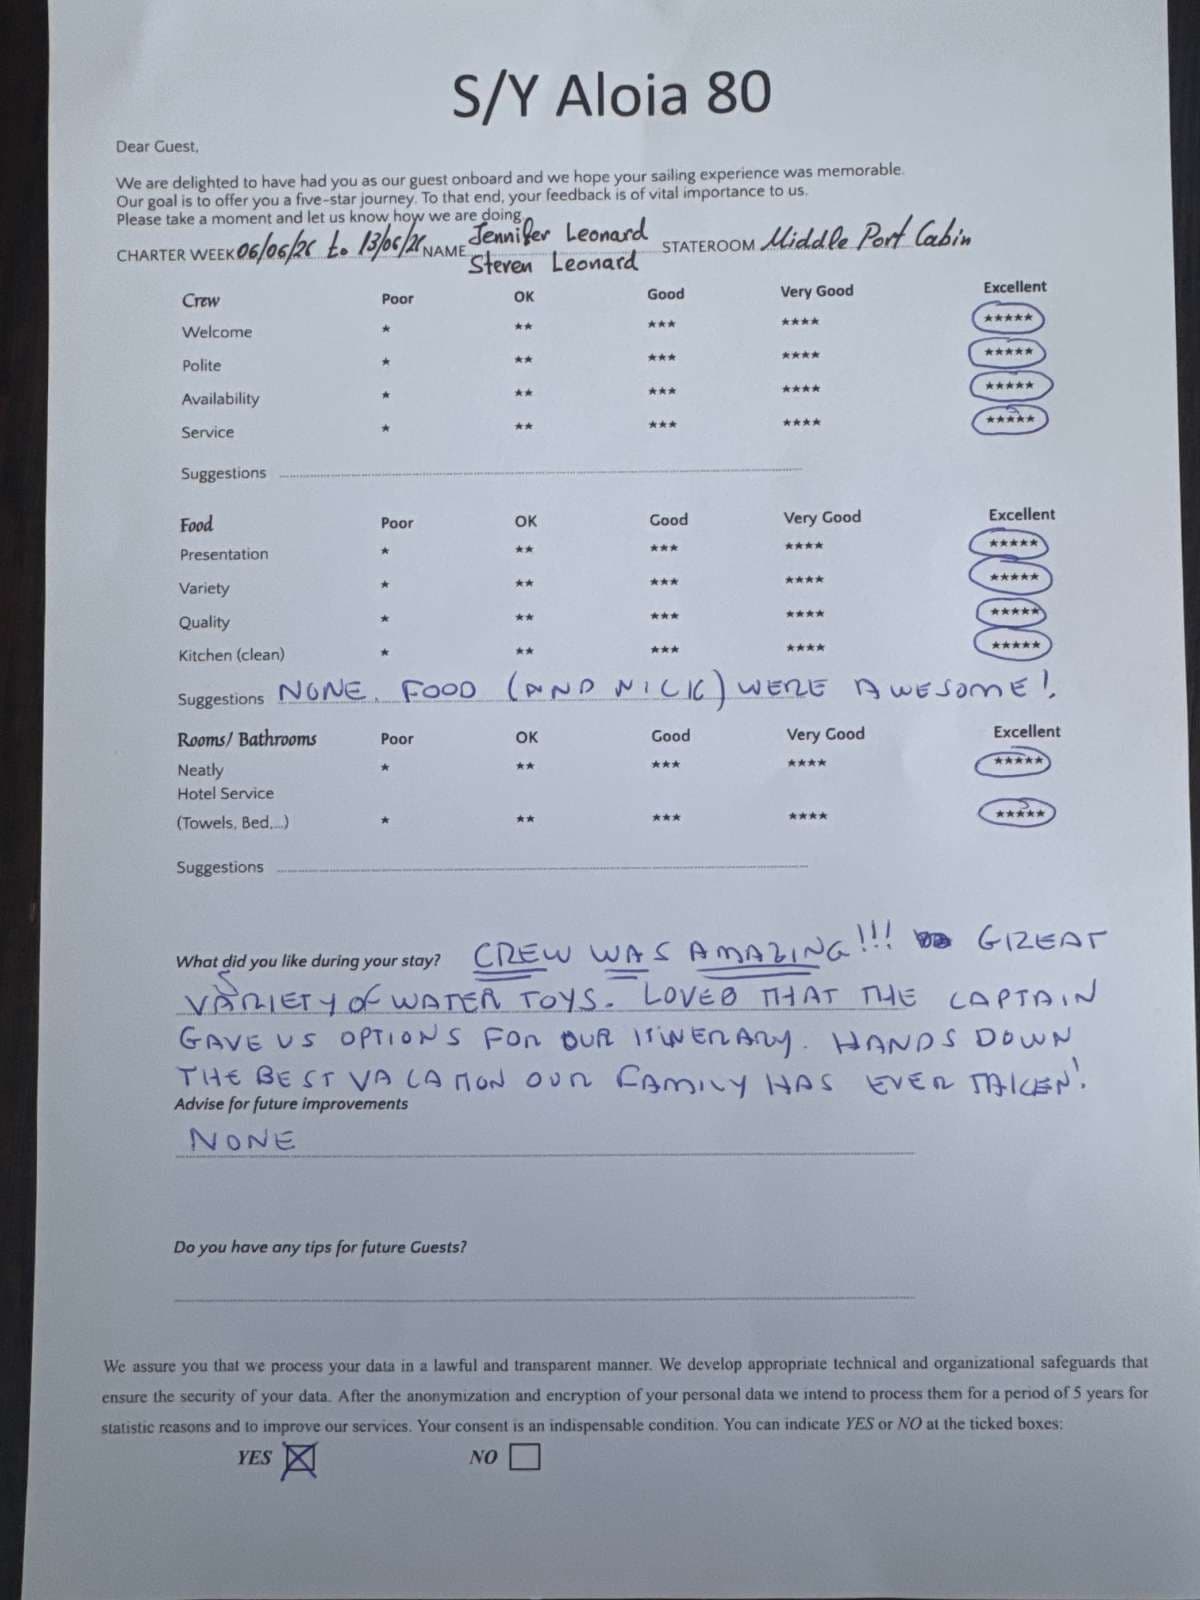 S/Y Aloia 80
Dear Guest,
We are delighted to have had you as our guest onboard and we hope your sailing experience was memorable.
Our goal is to offer you a five-star journey. To that end, your feedback is of vital importance to us.
Please take a moment and let us know how we are doing.
CHARTER WEEK 06/06/26 to 13/06/26 NAME Jennifer Leonard STATEROOM Middle Port Cabin
Steven Leonard
Crew Poor OK Good Very Good Excellent
Welcome * ** *** **** *****
Polite * ** *** **** *****
Availability * ** *** **** *****
Service * ** *** **** *****
Suggestions
Food Poor OK Good Very Good Excellent
Presentation * ** *** **** *****
Variety * ** *** **** *****
Quality * ** *** **** *****
Kitchen (clean) * ** *** **** *****
Suggestions NONE. FOOD (AND NICK) WERE AWESOME!
Rooms/ Bathrooms Poor OK Good Very Good Excellent
Neatly * ** *** **** *****
Hotel Service
(Towels, Bed,...) * ** *** **** *****
Suggestions
What did you like during your stay? CREW WAS AMAZING!!! GREAT
VARIETY OF WATER TOYS. LOVED THAT THE CAPTAIN
GAVE US OPTIONS FOR OUR ITINERARY. HANDS DOWN
THE BEST VACATION OUR FAMILY HAS EVER TAKEN!
Advise for future improvements
NONE
Do you have any tips for future Guests?
We assure you that we process your data in a lawful and transparent manner. We develop appropriate technical and organizational safeguards that
ensure the security of your data. After the anonymization and encryption of your personal data we intend to process them for a period of 5 years for
statistic reasons and to improve our services. Your consent is an indispensable condition. You can indicate YES or NO at the ticked boxes:
YES NO